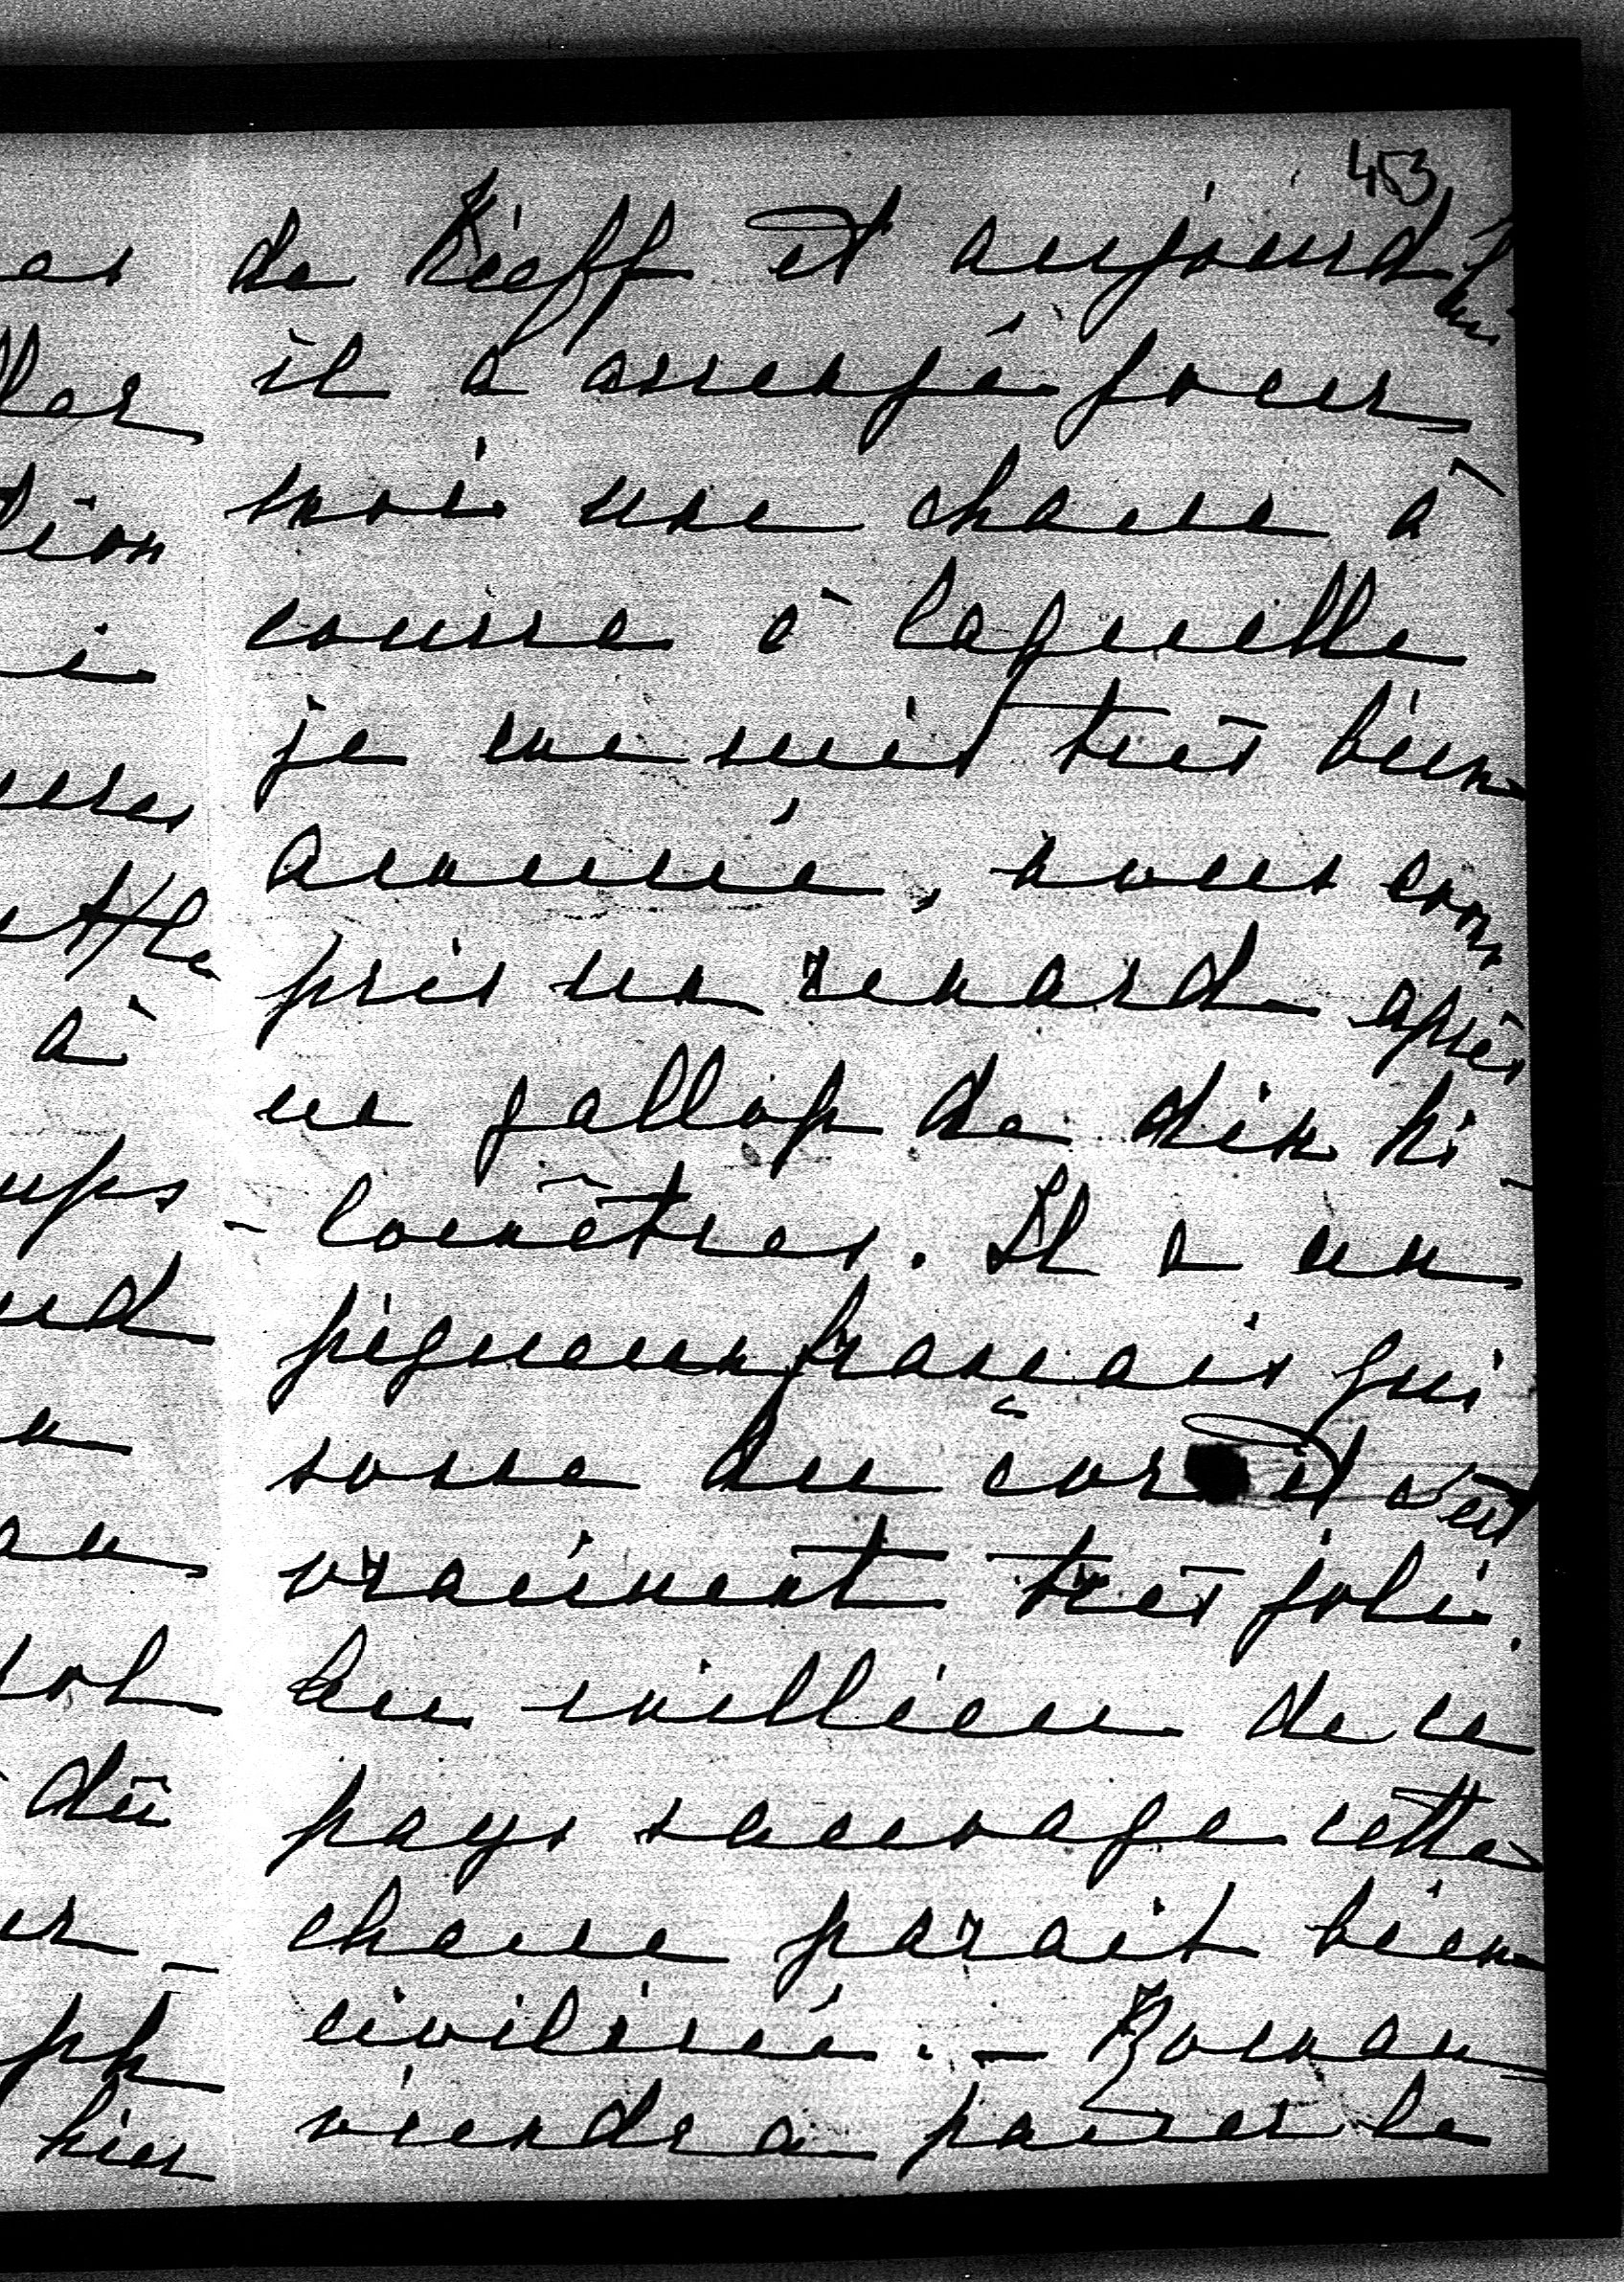 453
de Kieff et aujourd'hui
il a arrangé pour
moi une chasse à
courre à laquelle
je me suis très bien
amusé, nous avons
pris un renard après
un gallop de dix ki-
-lomètres. Il a un
piqueur français qui
sonne du cor et c'est
vraiment très joli.
Au millieu de ce
pays sauvage cette
chasse parait bien
civilisée. – Roman
viendra passer le
es
ller
tion
i
ttle
à
ups
nd
u
sol
dû
er –
hier